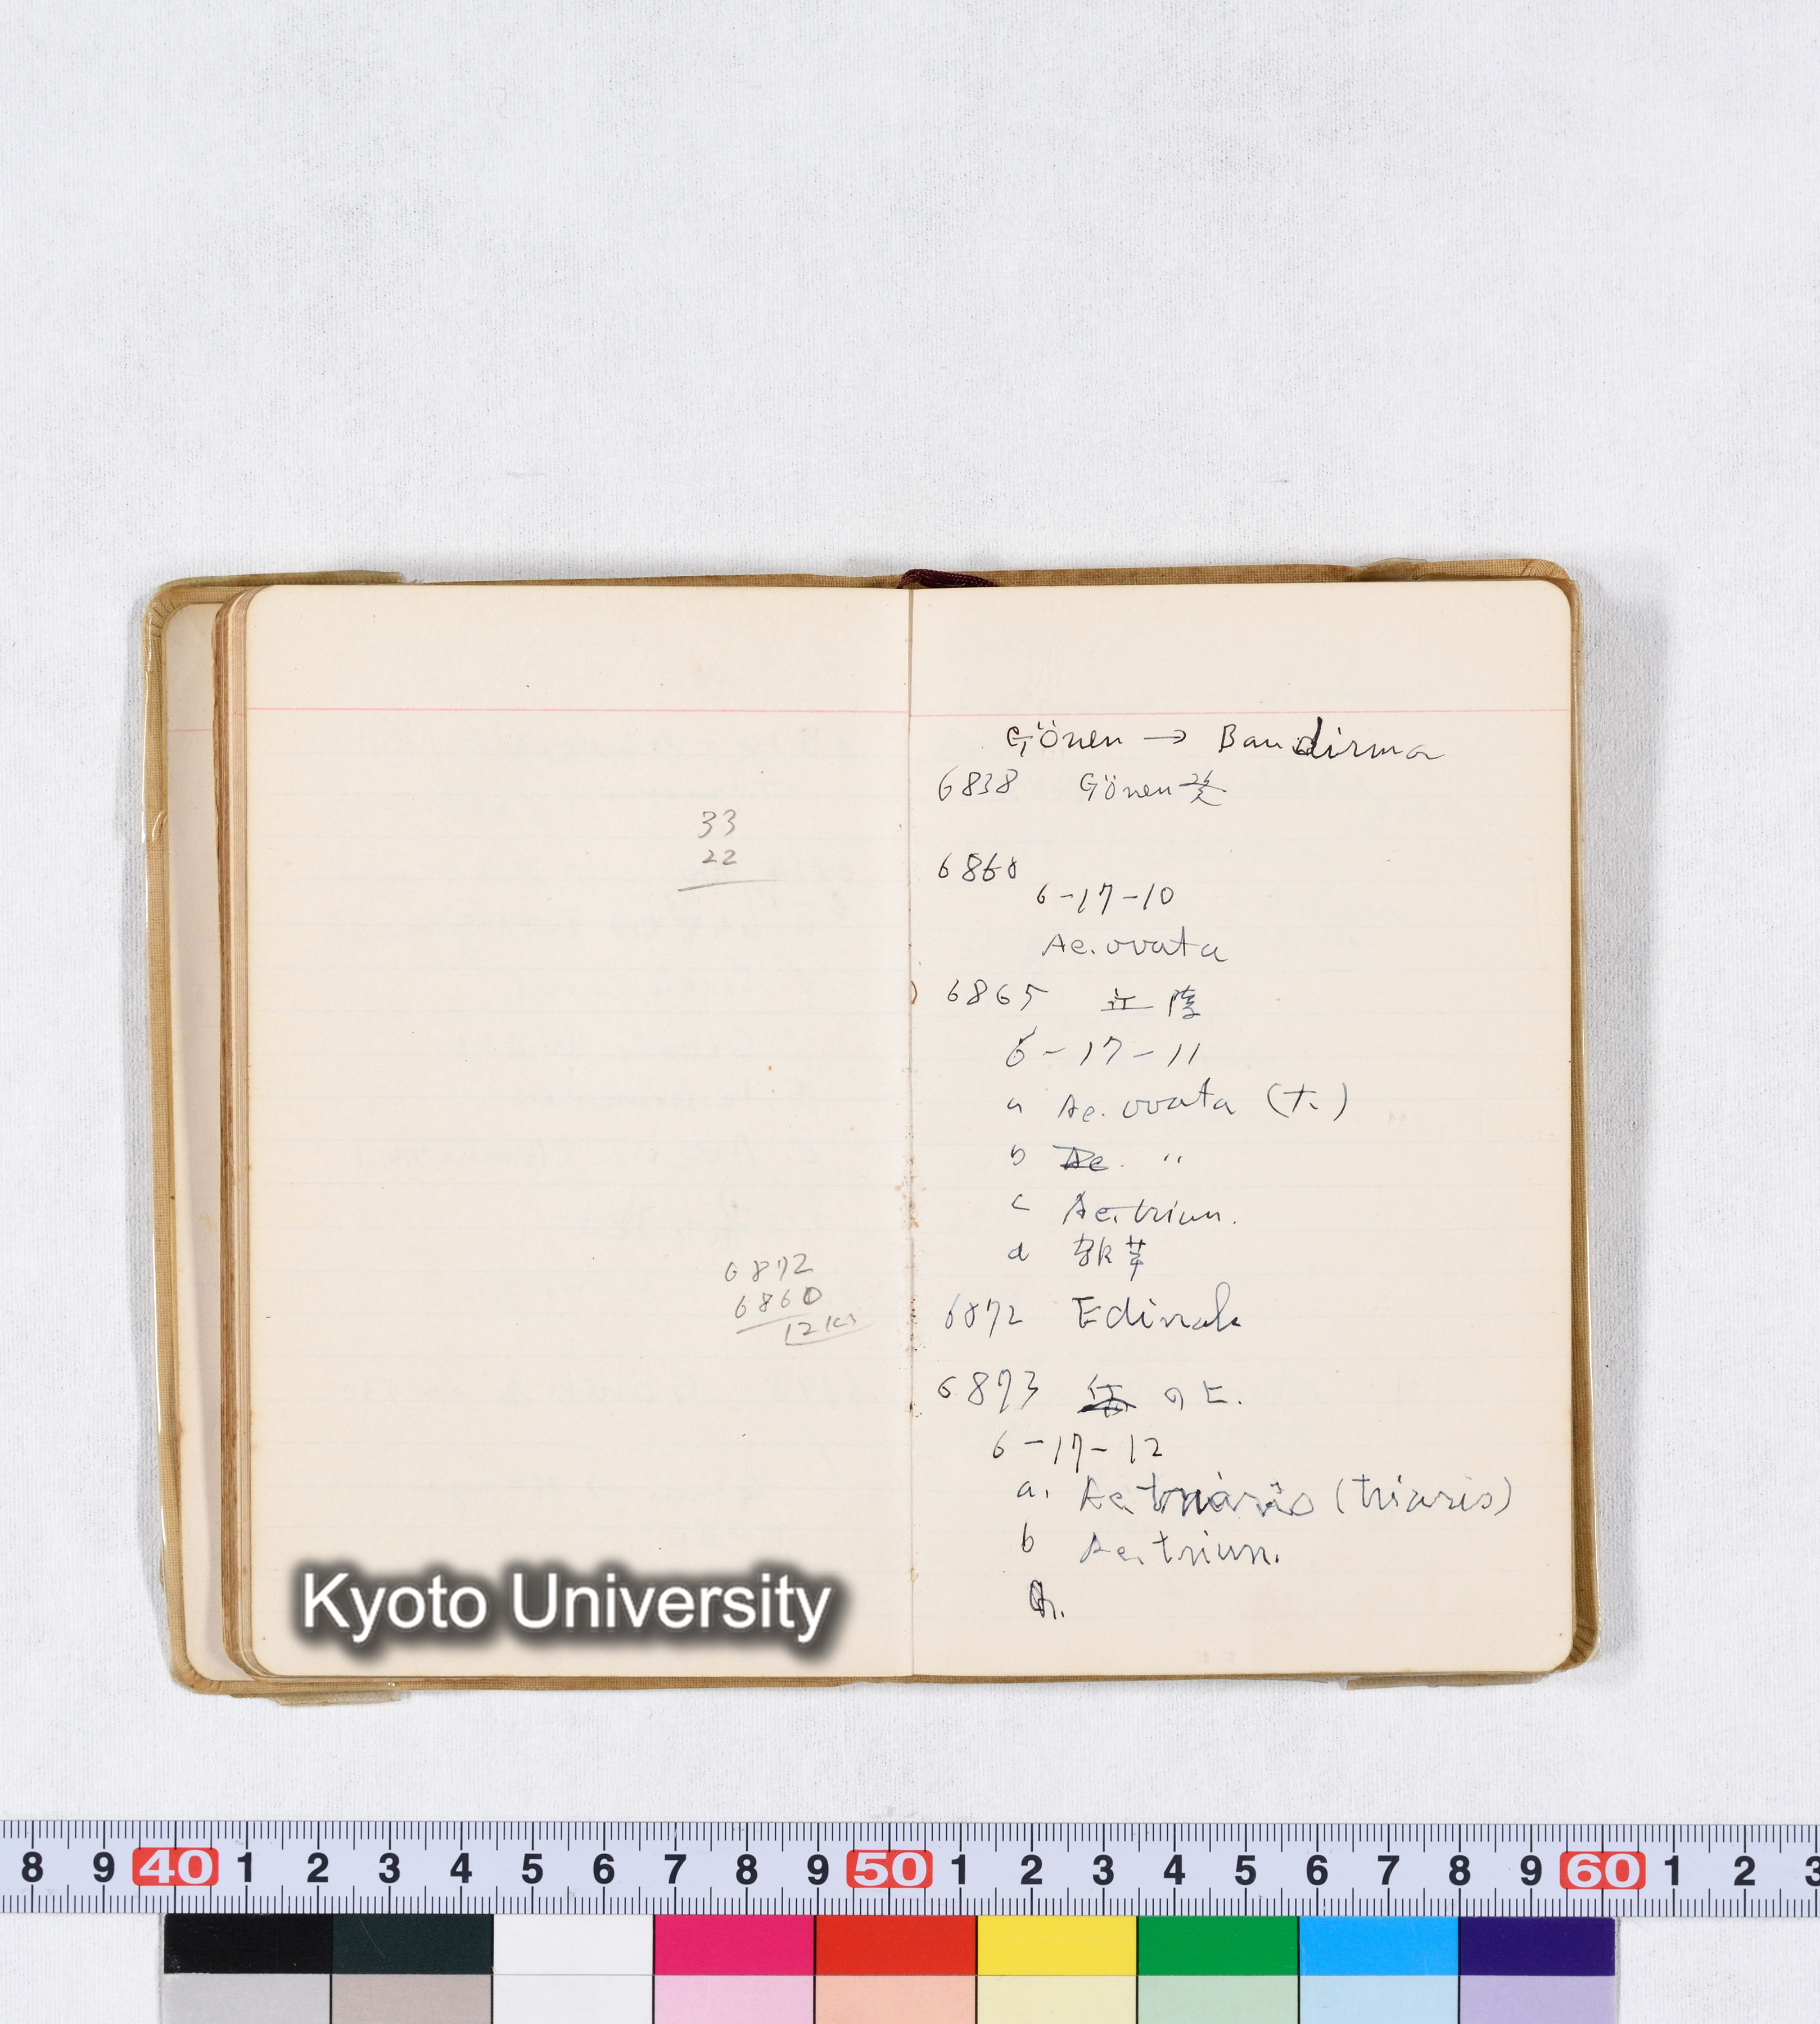 33
22
6872
6860
12 km
Gönen → Bandirma
6838 Gönen発
6860
6-17-10
Ae. ovata
6865
6-17-11
a Ae. ovata (大)
b Ae. 〃
c Ae. triun.
d
6872 Edincik
6873 の上.
6-17-12
a. Ae. triaris (triaris)
b Ae. triun.
Kyoto University
8 9 40 1 2 3 4 5 6 7 8 9 50 1 2 3 4 5 6 7 8 9 60 1 2 3